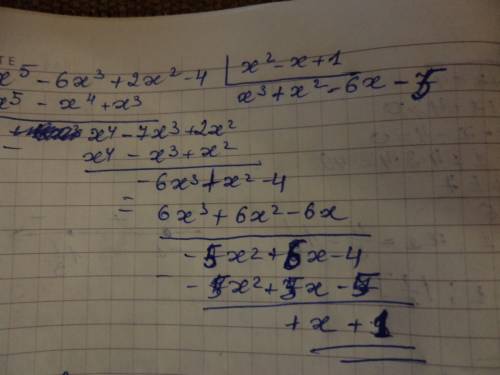 x⁵ - 6x³ + 2x² - 4 | x² - x + 1
x⁵ - x⁴ + x³ x³ + x² - 6x - 5
x⁴ - 7x³ + 2x²
x⁴ - x³ + x²
- 6x³ + x² - 4
6x³ + 6x² - 6x
- 5x² + 6x - 4
- 5x² + 5x - 5
+ x + 1